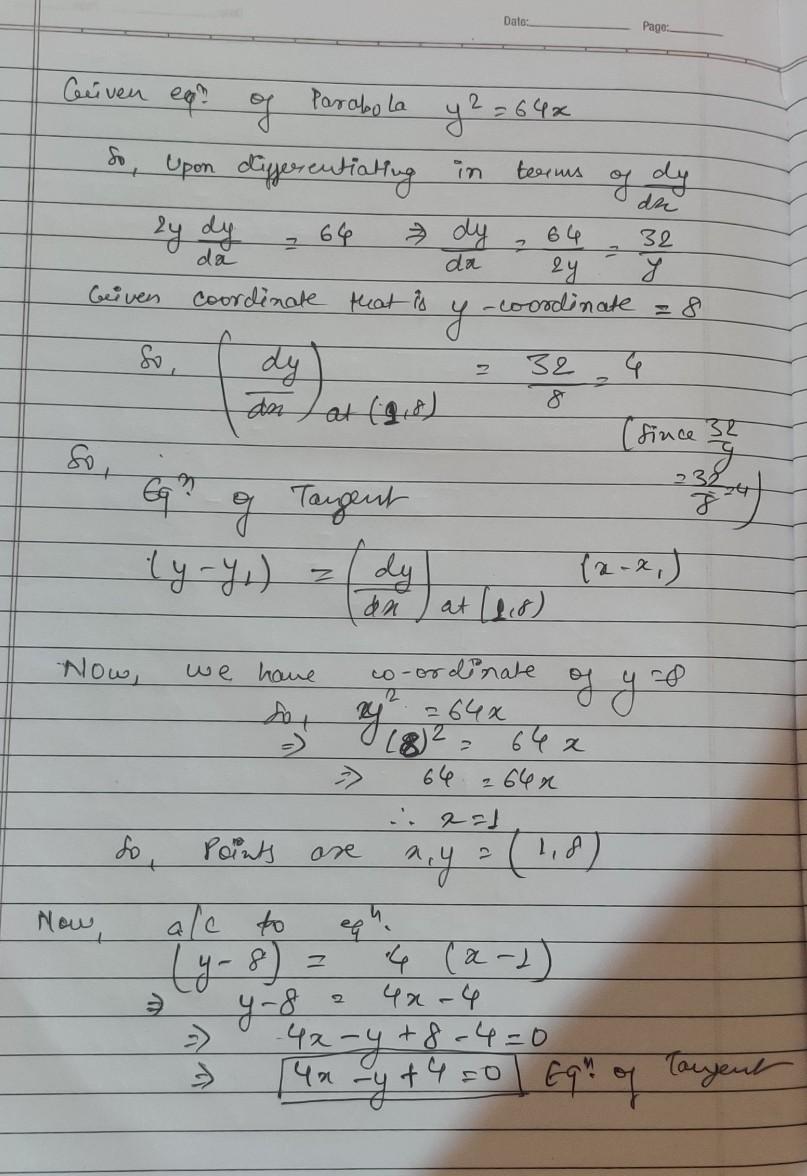 Date: Page:
Given eqⁿ. of Parabola y² = 64x
So, Upon differentiating in terms of dy/dx
2y dy/dx = 64 ⇒ dy/dx = 64/2y = 32/y
Given coordinate that is y-coordinate = 8
So, (dy/dx) at (1,8) = 32/8 = 4
(Since 32/y
= 32/8 = 4)
So,
Eqⁿ of Tangent
(y - y₁) = (dy/dx) at (1,8) (x - x₁)
Now, we have co-ordinate of y = 8
So, y² = 64x
⇒ (8)² = 64x
⇒ 64 = 64x
∴ x = 1
So, Points are x,y = (1,8)
Now, a/c to eqⁿ.
(y - 8) = 4 (x - 1)
⇒ y - 8 = 4x - 4
⇒ 4x - y + 8 - 4 = 0
⇒ 4x - y + 4 = 0 Eqⁿ. of Tangent